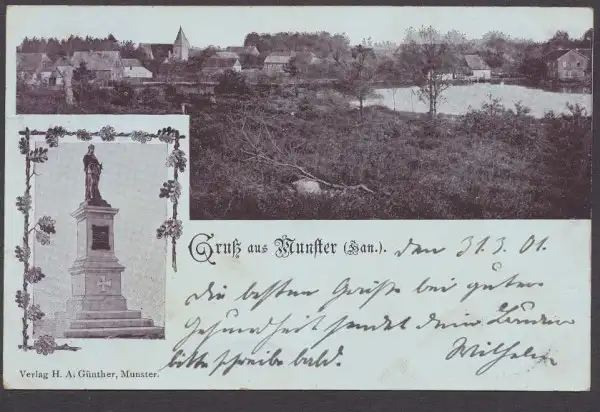 Gruß aus Munster (Han.). den 31.3.01.
die besten Grüße bei guter
Gesundheit sendet dein
bitte schreibe bald. Wilhelm
Verlag H. A. Günther, Munster.